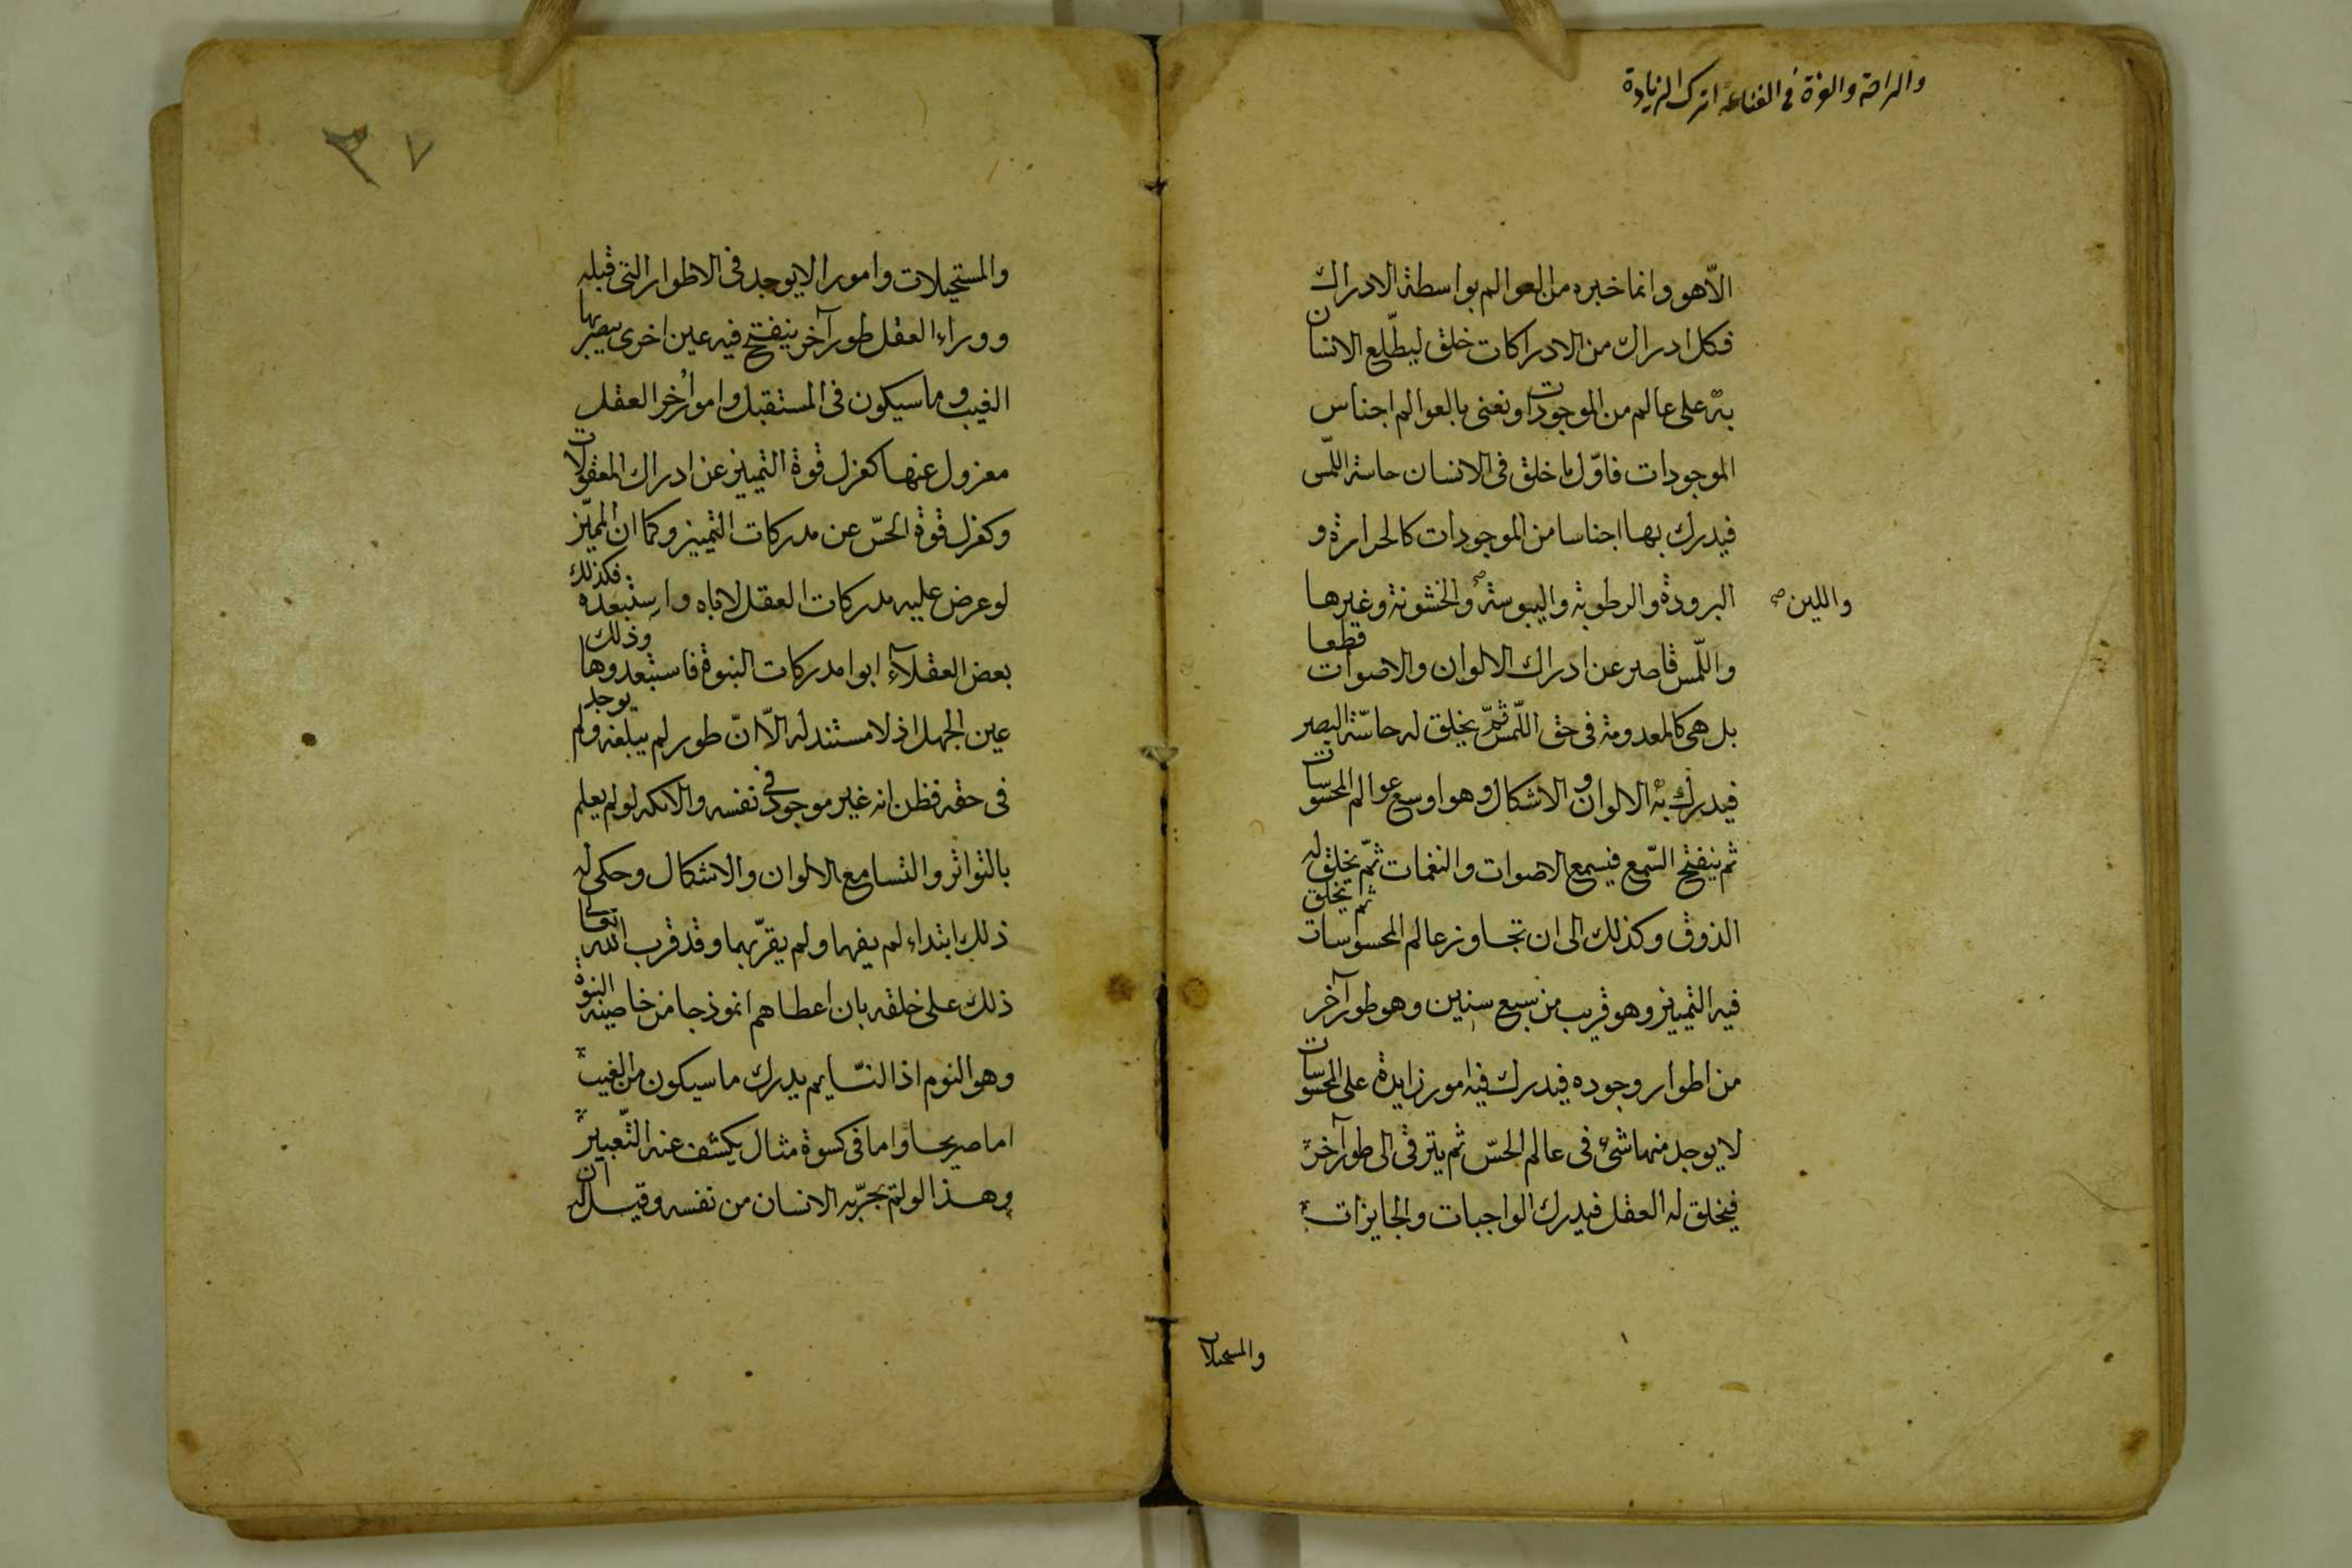 والراحة والعزة في القناعة اترك الزيادة
الّا هو وانما خبره من العوالم بواسطة الادراك
فكل ادراك من الادراكات خلق ليطّلع الانسان
به على عالم من الموجودات ونعنى بالعوالم اجناس
الموجودات فاوّل ما خلق فى الانسان حاسة اللّمس
فيدرك بها اجناسا من الموجودات كالحرارة و
البرودة والرطوبة واليبوسة والخشونة وغيرها
واللين صح
واللّمس قاصر عن ادراك الالوان والاصوات قطعا
بل هى كالمعدومة فى حق اللّمس ثمّ يخلق له حاسّة البصر
فيدرك به الالوان والاشكال وهو اوسع عوالم المحسوسات
ثم ينفتح السّمع فيسمع الاصوات والنغمات ثمّ يخلق له
الذوق وكذلك الى ان تجاوز عالم المحسوسات ثم يخلق
فيه التمييز وهو قريب من سبع سنين وهو طور آخر
من اطوار وجوده فيدرك فيه امور زايدة على المحسوسات
لا يوجد منها شئ فى عالم الحسّ ثم يترقى الى طور آخر
فيخلق له العقل فيدرك الواجبات والجايزات
والمستحيلات
٣٧
والمستحيلات وامورا لا يوجد فى الاطوار التى قبله
ووراء العقل طور آخر ينفتح فيه عين اخرى يبصر بها
الغيب وما سيكون فى المستقبل وامور اُخر العقل
معزول عنها كعزل قوة التمييز عن ادراك المعقولات
وكعزل قوة الحسّ عن مدركات التمييز وكما ان المميّز
لو عرض عليه مدركات العقل لاباه واستبعده فكذلك
بعض العقلآء ابوا مدركات النبوة فاستبعدوها وذلك
عين الجهل اذ لا مستند له الّا انّ طور لم يبلغه ولم يوجد
فى حقه فظن انه غير موجود فى نفسه والاكمه لو لم يعلم
بالتواتر والتسامع الالوان والاشكال وحكى له
ذلك ابتداء لم يفهما ولم يقرّ بهما وقد قرب الله تعالى
ذلك على خلقه بان اعطاهم انموذجا من خاصية النبوة
وهو النوم اذ النّايم يدرك ما سيكون من الغيب
اما صريحا واما فى كسوة مثال يكشف عنه التّعبير
وهذا لو لم يجرّبه الانسان من نفسه وقيل له ان